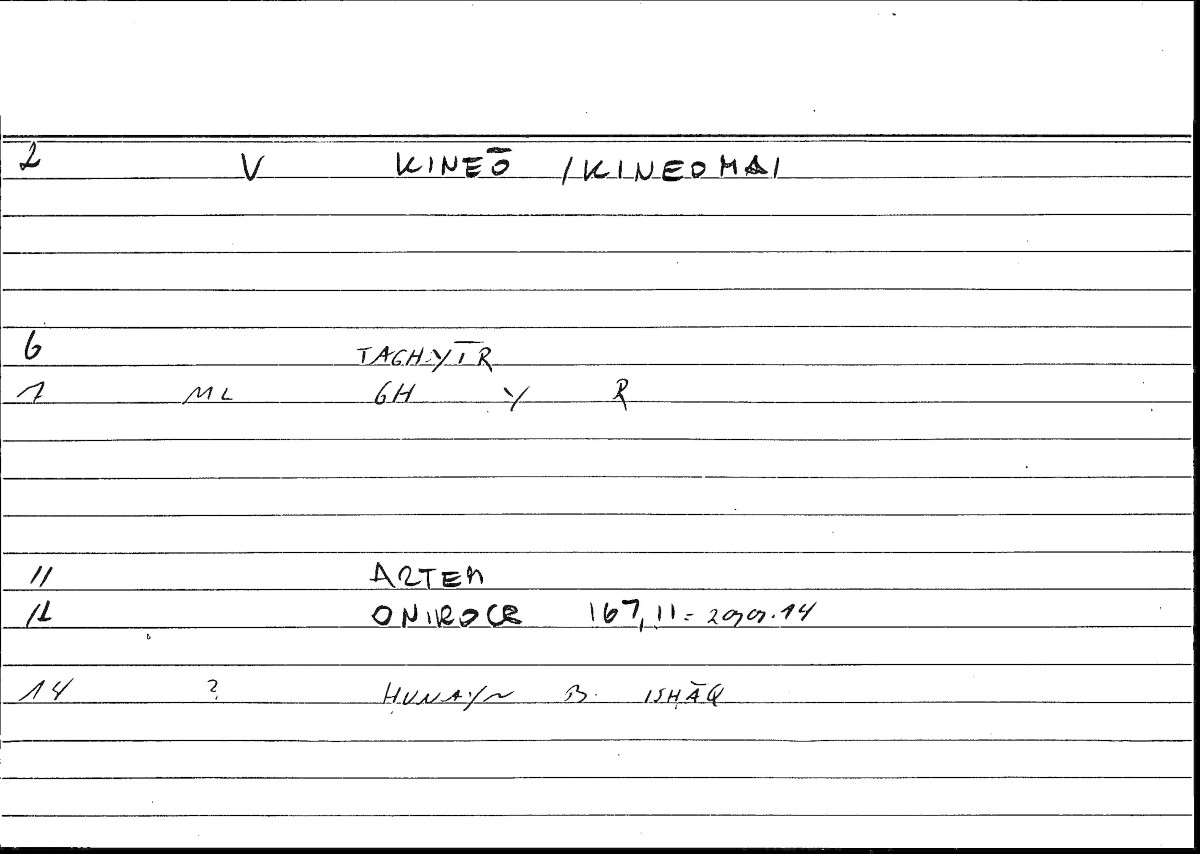 2 V KINEŌ /KINEOMAI
6 TAGHYĪR
7 ML GH Y R
11 ARTEM
12 ONIROCR 167,11 = 299.14
14 ? ḤUNAYN B. ISḤĀQ